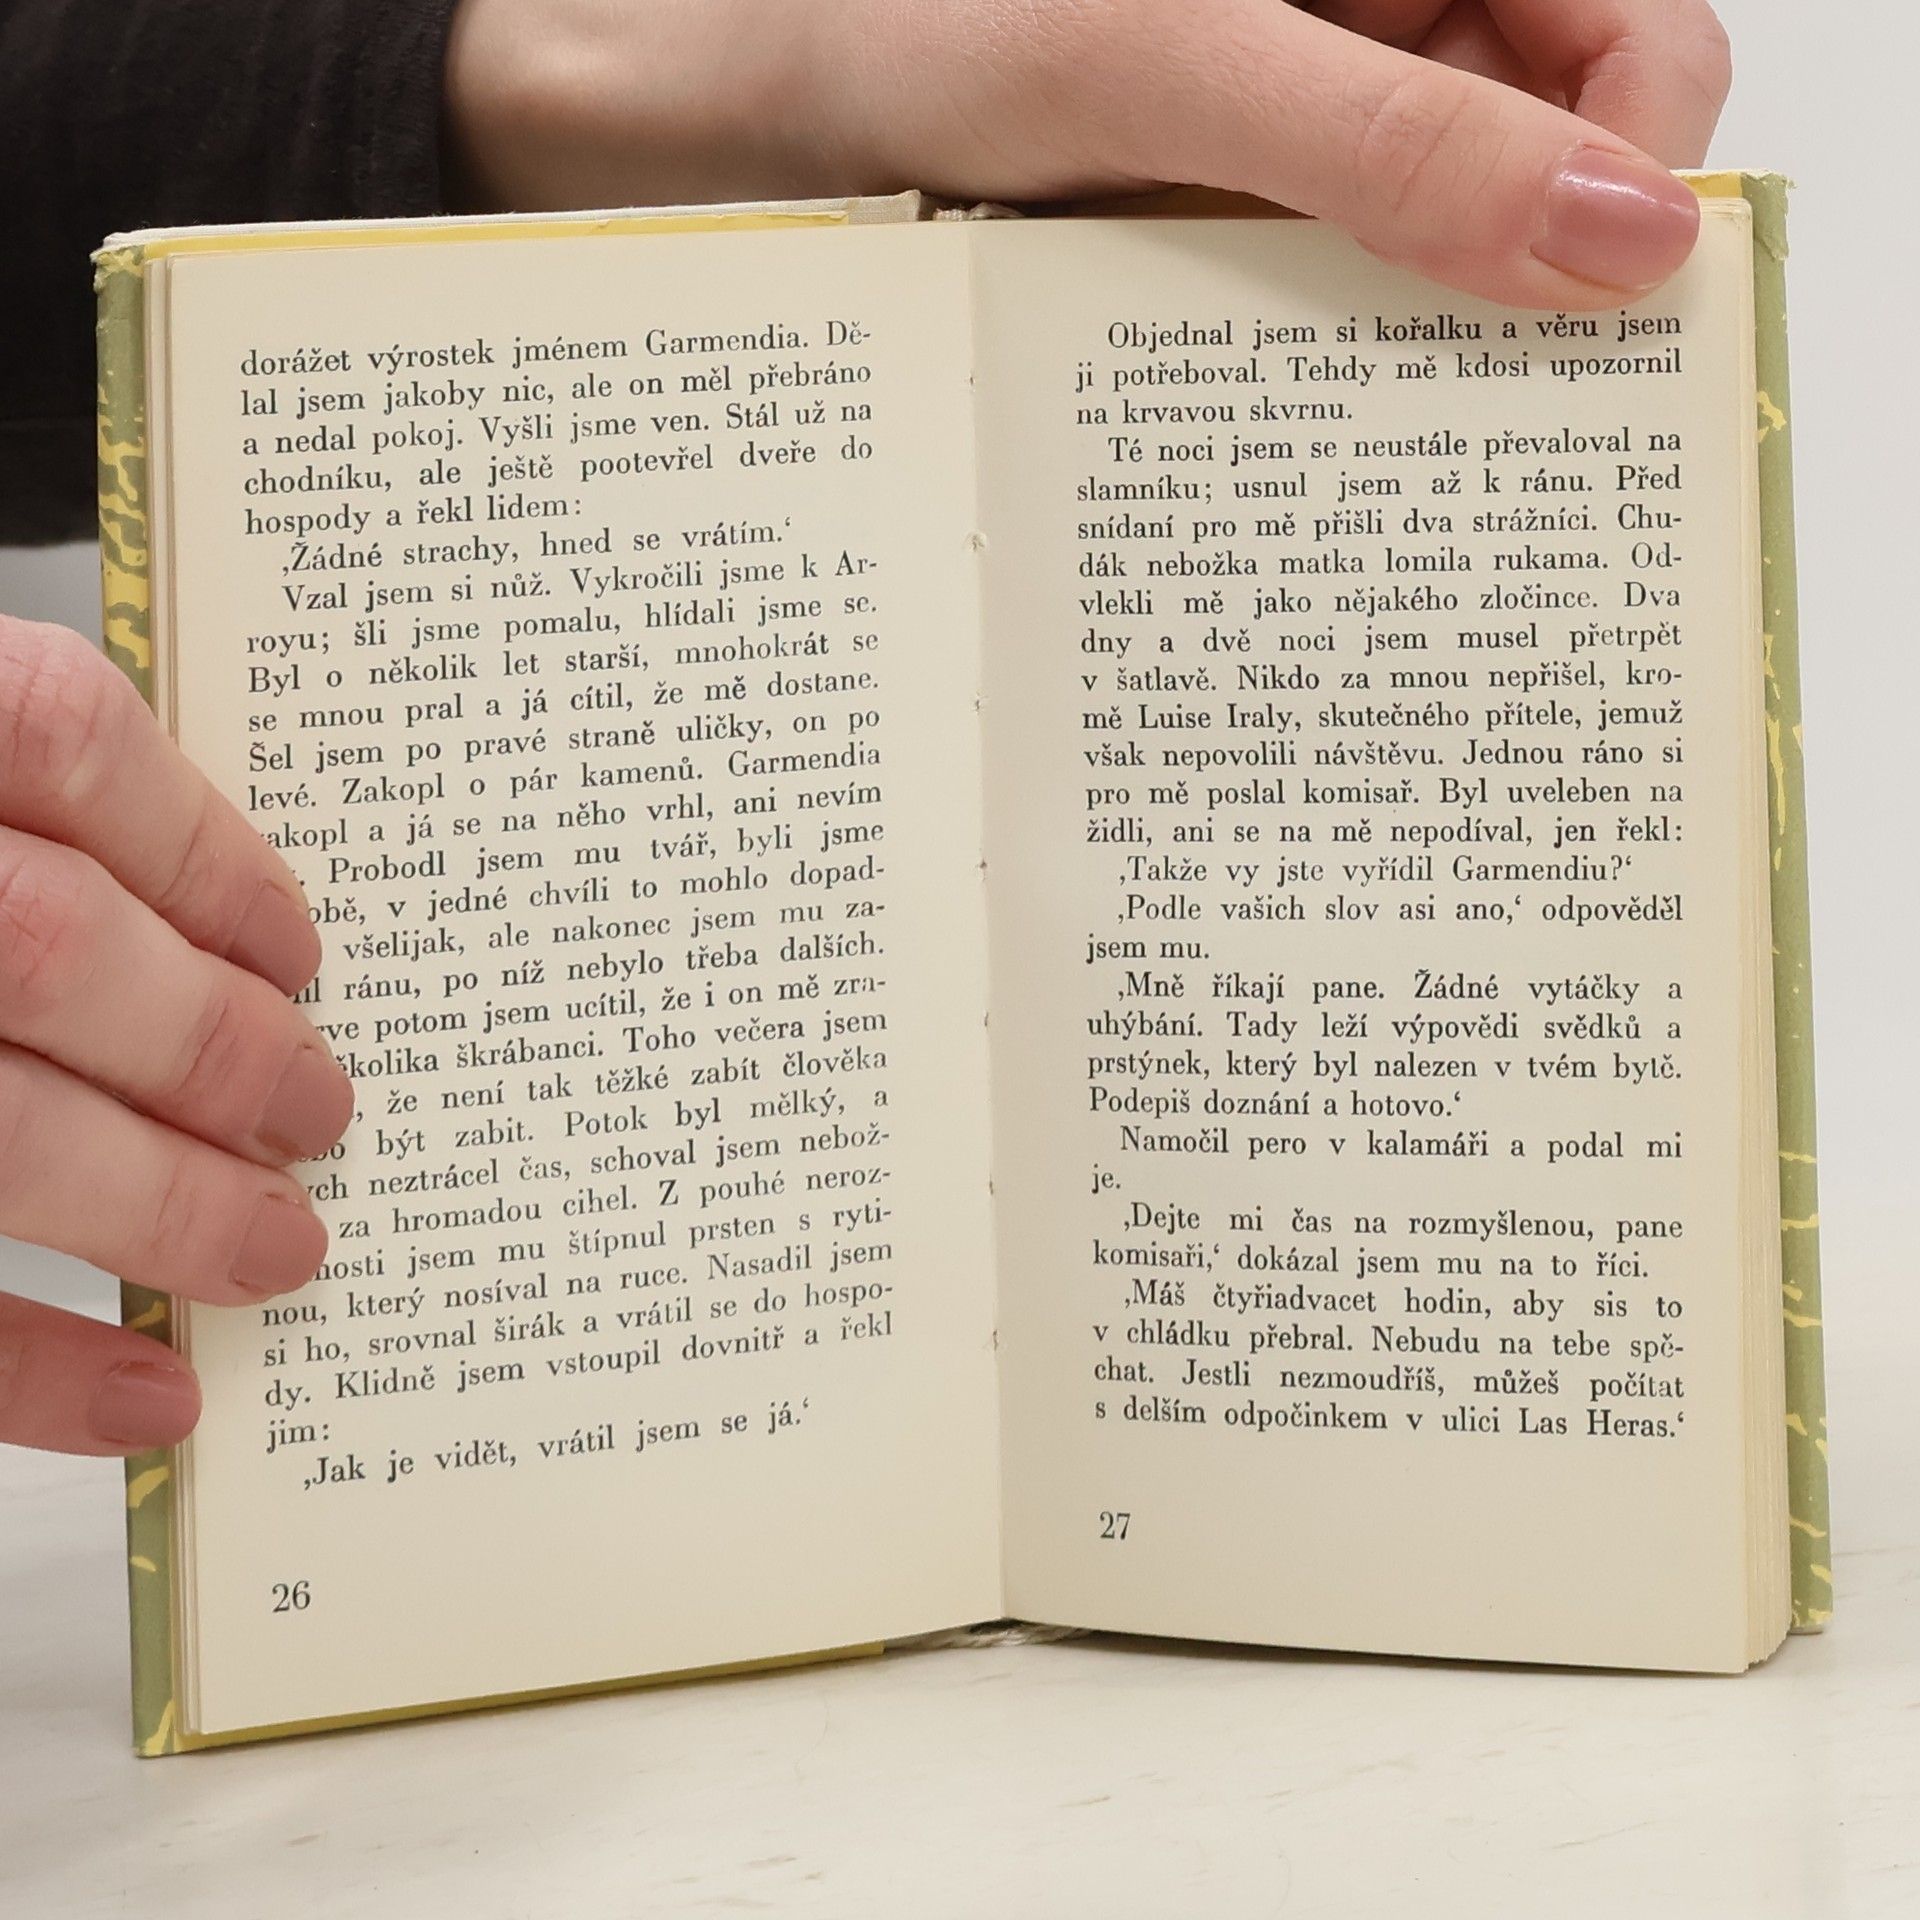 dorážet výrostek jménem Garmendia. Dě-
lal jsem jakoby nic, ale on měl přebráno
a nedal pokoj. Vyšli jsme ven. Stál už na
chodníku, ale ještě pootevřel dveře do
hospody a řekl lidem:
‚Žádné strachy, hned se vrátím.‘
Vzal jsem si nůž. Vykročili jsme k Ar-
royu; šli jsme pomalu, hlídali jsme se.
Byl o několik let starší, mnohokrát se
se mnou pral a já cítil, že mě dostane.
Šel jsem po pravé straně uličky, on po
levé. Zakopl o pár kamenů. Garmendia
a já se na něho vrhl, ani nevím
Probodl jsem mu tvář, byli jsme
v jedné chvíli to mohlo dopad-
všelijak, ale nakonec jsem mu za-
ránu, po níž nebylo třeba dalších.
potom jsem ucítil, že i on mě zra-
škrábanci. Toho večera jsem
že není tak těžké zabít člověka
být zabit. Potok byl mělký, a
neztrácel čas, schoval jsem nebož-
za hromadou cihel. Z pouhé neroz-
jsem mu štípnul prsten s ryti-
nou, který nosíval na ruce. Nasadil jsem
si ho, srovnal širák a vrátil se do hospo-
dy. Klidně jsem vstoupil dovnitř a řekl
jim:
‚Jak je vidět, vrátil jsem se já.‘
26
Objednal jsem si kořalku a věru jsem
ji potřeboval. Tehdy mě kdosi upozornil
na krvavou skvrnu.
Té noci jsem se neustále převaloval na
slamníku; usnul jsem až k ránu. Před
snídaní pro mě přišli dva strážníci. Chu-
dák nebožka matka lomila rukama. Od-
vlekli mě jako nějakého zločince. Dva
dny a dvě noci jsem musel přetrpět
v šatlavě. Nikdo za mnou nepřišel, kro-
mě Luise Iraly, skutečného přítele, jemuž
však nepovolili návštěvu. Jednou ráno si
pro mě poslal komisař. Byl uveleben na
židli, ani se na mě nepodíval, jen řekl:
‚Takže vy jste vyřídil Garmendiu?‘
‚Podle vašich slov asi ano,‘ odpověděl
jsem mu.
‚Mně říkají pane. Žádné vytáčky a
uhýbání. Tady leží výpovědi svědků a
prstýnek, který byl nalezen v tvém bytě.
Podepiš doznání a hotovo.‘
Namočil pero v kalamáři a podal mi
je.
‚Dejte mi čas na rozmyšlenou, pane
komisaři,‘ dokázal jsem mu na to říci.
‚Máš čtyřiadvacet hodin, aby sis to
v chládku přebral. Nebudu na tebe spě-
chat. Jestli nezmoudříš, můžeš počítat
s delším odpočinkem v ulici Las Heras.‘
27